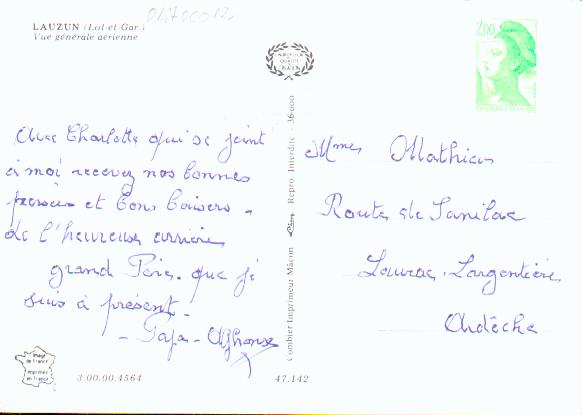 04700012
LAUZUN (Lot-et-Gar.)
Vue générale aérienne
2,00
Avec Charlotte qui se joint
à moi recevez nos bonnes
pensées et bons baisers -
de l'heureux arrière
grand Père. que je
suis à présent -
- Papa - Alphonse
Mmes Mathieu
Route de Sanilac
Laurac-Largentière
Ardèche
Combier Imprimeur Mâcon
Repro. Interdite - 36000
image
de France
imprimée
en France
3.00.00.4564
47.142